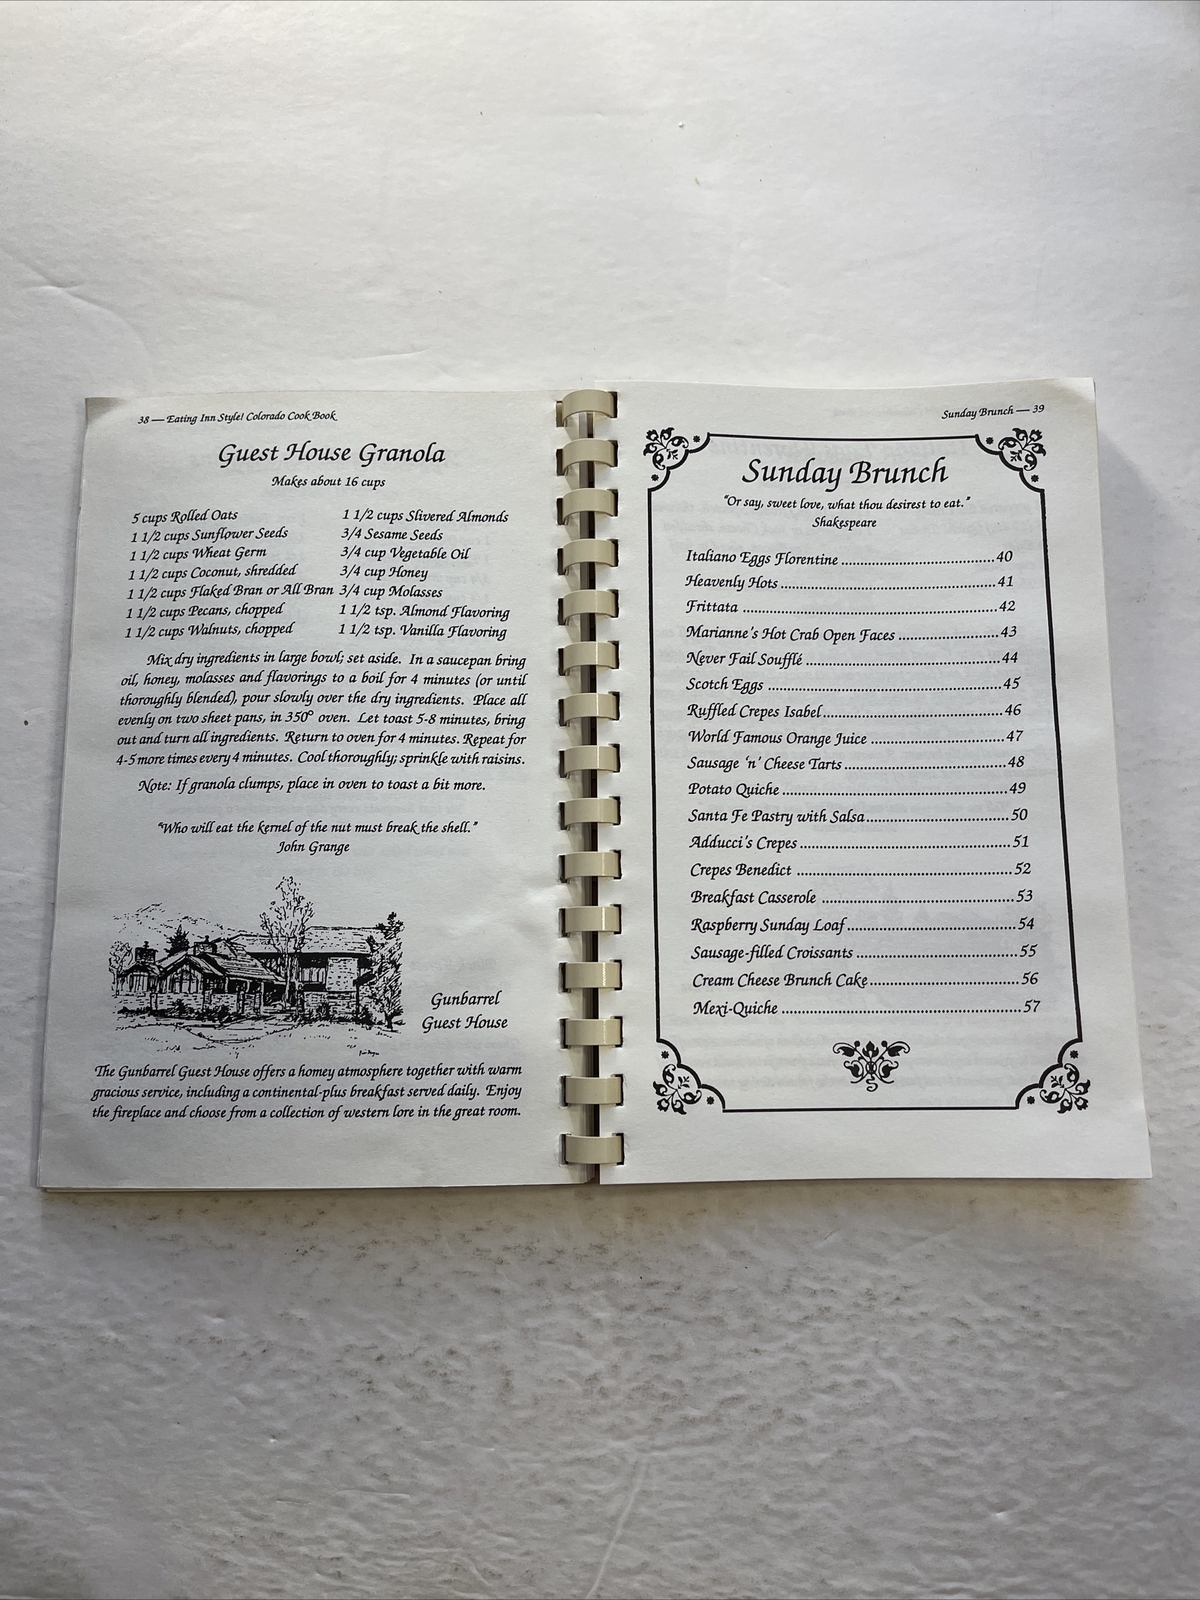 38 — Eating Inn Style! Colorado Cook Book
Guest House Granola
Makes about 16 cups
5 cups Rolled Oats
1 1/2 cups Sunflower Seeds
1 1/2 cups Wheat Germ
1 1/2 cups Coconut, shredded
1 1/2 cups Flaked Bran or All Bran
1 1/2 cups Pecans, chopped
1 1/2 cups Walnuts, chopped
1 1/2 cups Slivered Almonds
3/4 Sesame Seeds
3/4 cup Vegetable Oil
3/4 cup Honey
3/4 cup Molasses
1 1/2 tsp. Almond Flavoring
1 1/2 tsp. Vanilla Flavoring
Mix dry ingredients in large bowl; set aside. In a saucepan bring
oil, honey, molasses and flavorings to a boil for 4 minutes (or until
thoroughly blended), pour slowly over the dry ingredients. Place all
evenly on two sheet pans, in 350° oven. Let toast 5-8 minutes, bring
out and turn all ingredients. Return to oven for 4 minutes. Repeat for
4-5 more times every 4 minutes. Cool thoroughly; sprinkle with raisins.
Note: If granola clumps, place in oven to toast a bit more.
"Who will eat the kernel of the nut must break the shell."
John Grange
Gunbarrel
Guest House
The Gunbarrel Guest House offers a homey atmosphere together with warm
gracious service, including a continental-plus breakfast served daily. Enjoy
the fireplace and choose from a collection of western lore in the great room.
Sunday Brunch — 39
Sunday Brunch
"Or say, sweet love, what thou desirest to eat."
Shakespeare
Italiano Eggs Florentine ....................................40
Heavenly Hots ..................................................41
Frittata ..........................................................42
Marianne's Hot Crab Open Faces ........................43
Never Fail Soufflé .............................................44
Scotch Eggs ......................................................45
Ruffled Crepes Isabel..........................................46
World Famous Orange Juice ...............................47
Sausage 'n' Cheese Tarts .....................................48
Potato Quiche ...................................................49
Santa Fe Pastry with Salsa..................................50
Adducci's Crepes ................................................51
Crepes Benedict ..................................................52
Breakfast Casserole .............................................53
Raspberry Sunday Loaf........................................54
Sausage-filled Croissants .....................................55
Cream Cheese Brunch Cake..................................56
Mexi-Quiche ......................................................57